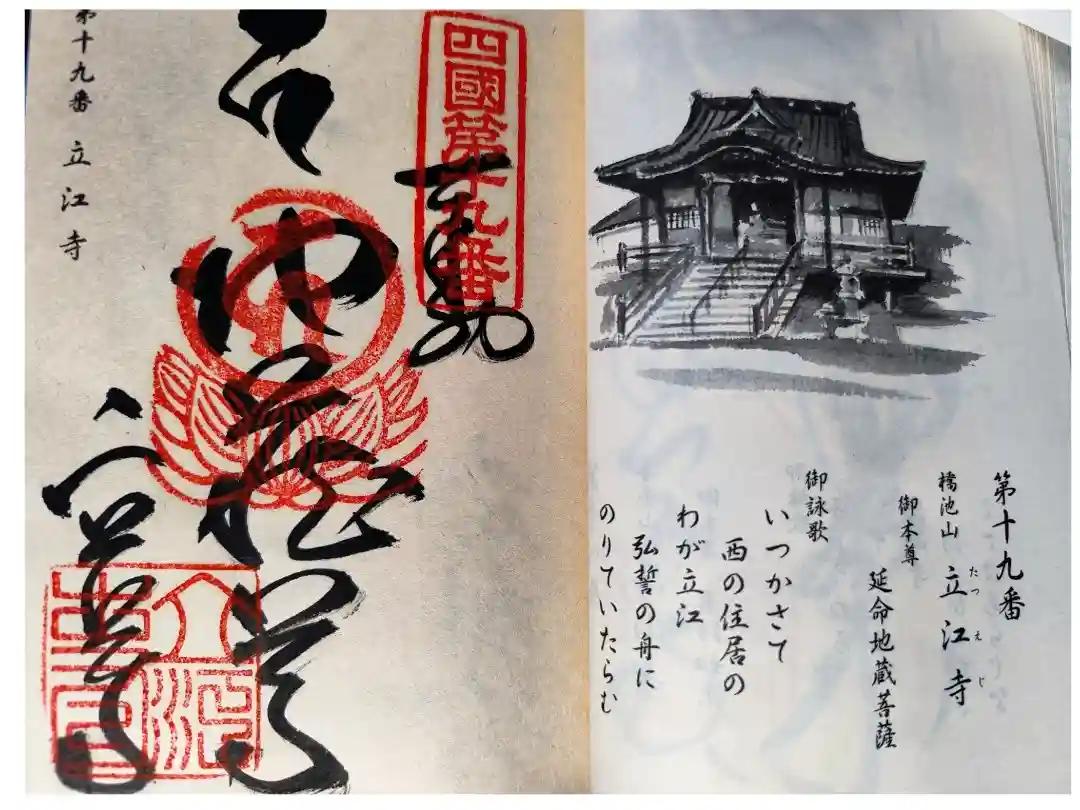 第十九番
橋池山 立江寺
たつえじ
御本尊
延命地蔵菩薩
御詠歌
いつかさて
西の住居の
わが立江
弘誓の舟に
のりていたらむ
四國第十九番
立江
寺印
第十九番 立江寺